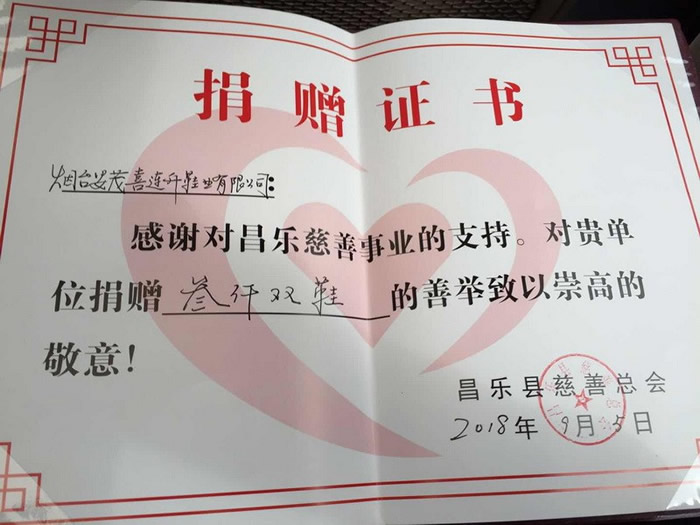 捐赠证书
烟台安茂喜连升鞋业有限公司:
感谢对昌乐慈善事业的支持。对贵单
位捐赠叁仟双鞋的善举致以崇高的
敬意!
昌乐县慈善总会
2018年9月5日